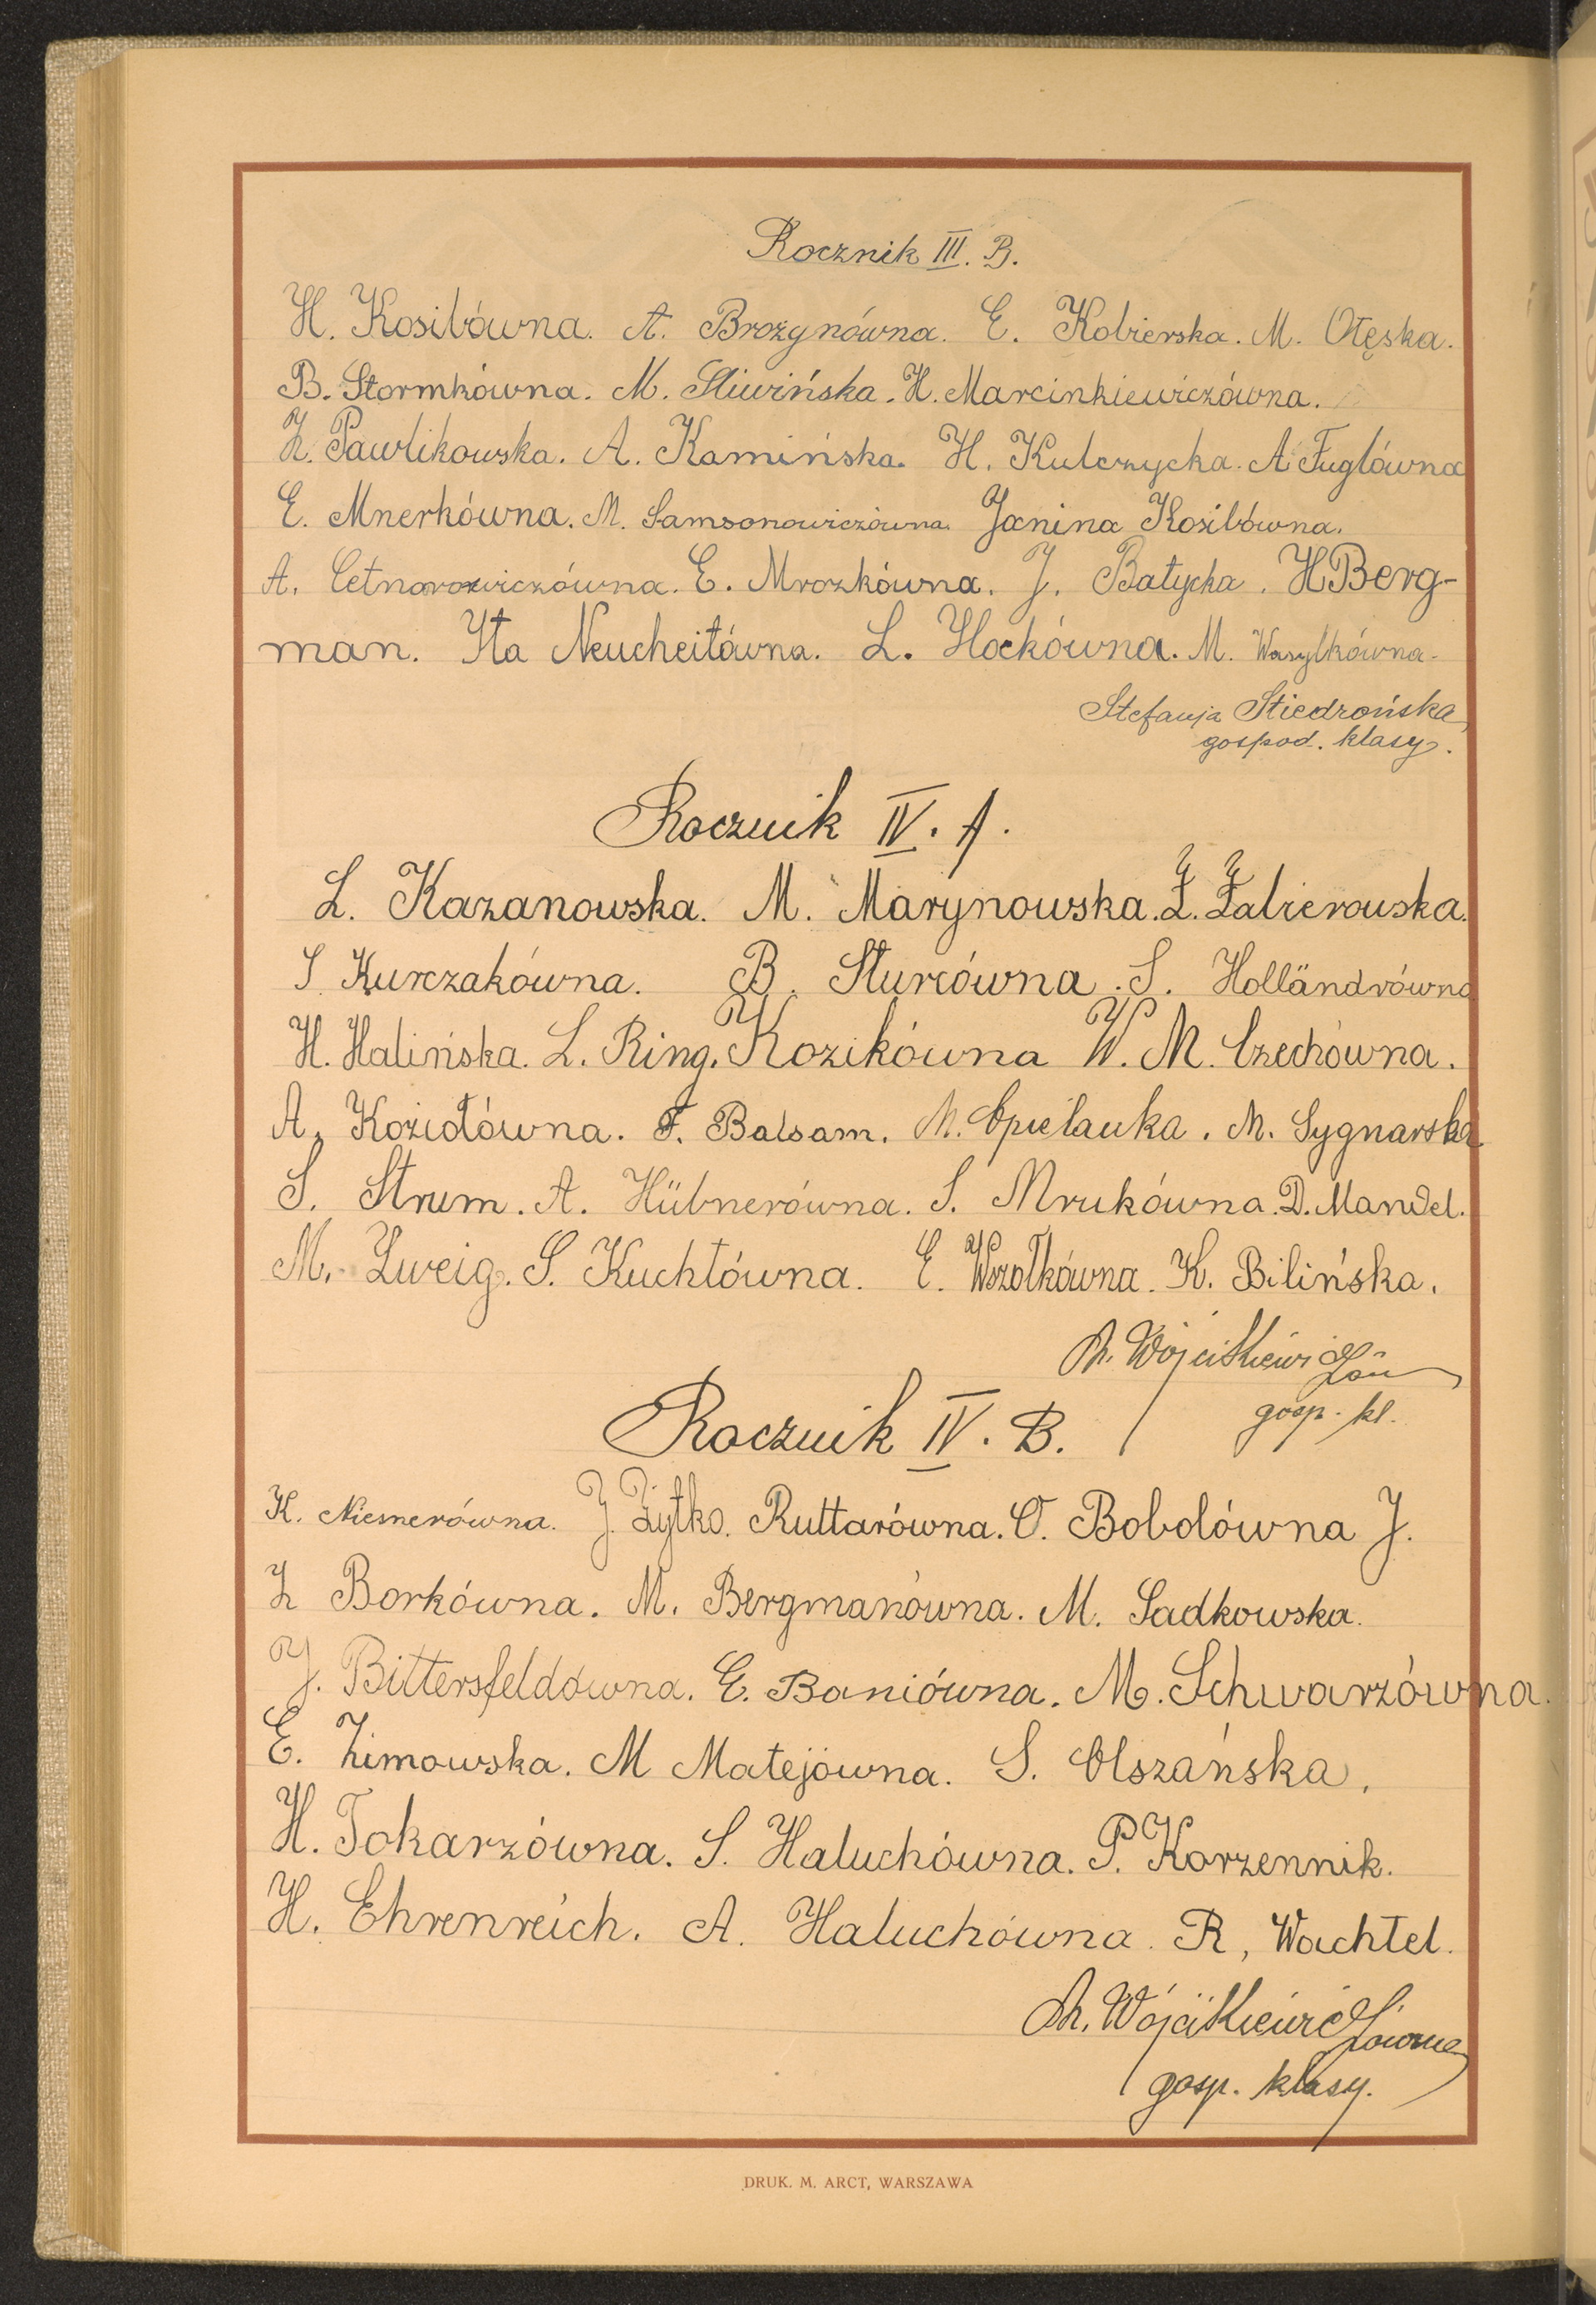 Rocznik III. B.
H. Kosibówna. A. Brożynówna. E. Kobierska. M. Otęska.
B. Stormkówna. M. Śliwińska. H. Marcinkiewiczówna.
Z. Pawlikowska. A. Kamińska. H. Kulczycka. A Fuglówna
E. Mnerkówna. M. Samsonowiczówna. Janina Kosibówna.
A. Cetnarowiczówna. E. Mrozkówna. J. Batycka. H Berg-
man. Ita Neucheitówna. L. Hockówna. M. Wasylkówna.
Stefanja Stiedrońska
gospod. klasy.
Rocznik IV. A.
L. Kazanowska. M. Marynowska. Z. Zabierowska.
S Kurczakówna. B. Sturcówna. S. Holländrówna
H. Halińska. L. Ring. Kozikówna W. M. Czechówna.
A. Koziołówna. F. Balsam. M. Opielauka. M. Sygnarska
S. Strum. A. Hübnerówna. S. Mrukówna. D. Mandel.
M. Zweig. S. Kuchtówna. E. Wszołkówna. K. Bilińska.
M. Wójcikiewiczówn
gosp. kl.
Rocznik IV. B.
K. Niemerówna. J. Żytko. Ruttarówna. O. Bobolówna J.
Z Borkówna. M. Bergmanówna. M. Sadkowska.
J. Bittersfeldówna. E. Baniówna. M. Schwarzówna.
E. Zimowska. M Matejówna. S. Olszańska.
H. Tokarzówna. S. Haluchówna. P. Korzennik.
H. Ehrenreich. A. Haluchówna. R, Wachtel.
M. Wójcikiewiczówna
gosp. klasy.
DRUK. M. ARCT, WARSZAWA